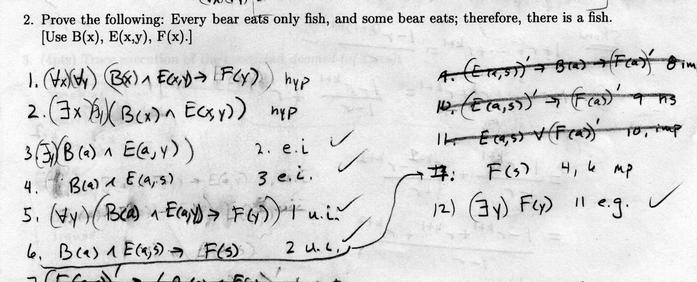 2. Prove the following: Every bear eats only fish, and some bear eats; therefore, there is a fish.
[Use B(x), E(x,y), F(x).]
1. (∀x)(∀y) (B(x) ∧ E(x,y) → F(y)) hyp
2. (∃x)(∃y)(B(x) ∧ E(x,y)) hyp
3 (∃y)(B(a) ∧ E(a,y)) 2. e.i ✓
4. B(a) ∧ E(a,s) 3 e.i. ✓
5. (∀y)(B(a) ∧ E(a,y) → F(y)) 1 u.i. ✓
6. B(a) ∧ E(a,s) → F(s) 2 u.i.
(E(a,s))' → B(a) → (F(a))' 8 im
10. (E(a,s))' → (F(a))' 9 hs
11. E(a,s) ∨ (F(a))' 10, imp
F(s) 4, 6 mp
12) (∃y) F(y) 11 e.g. ✓